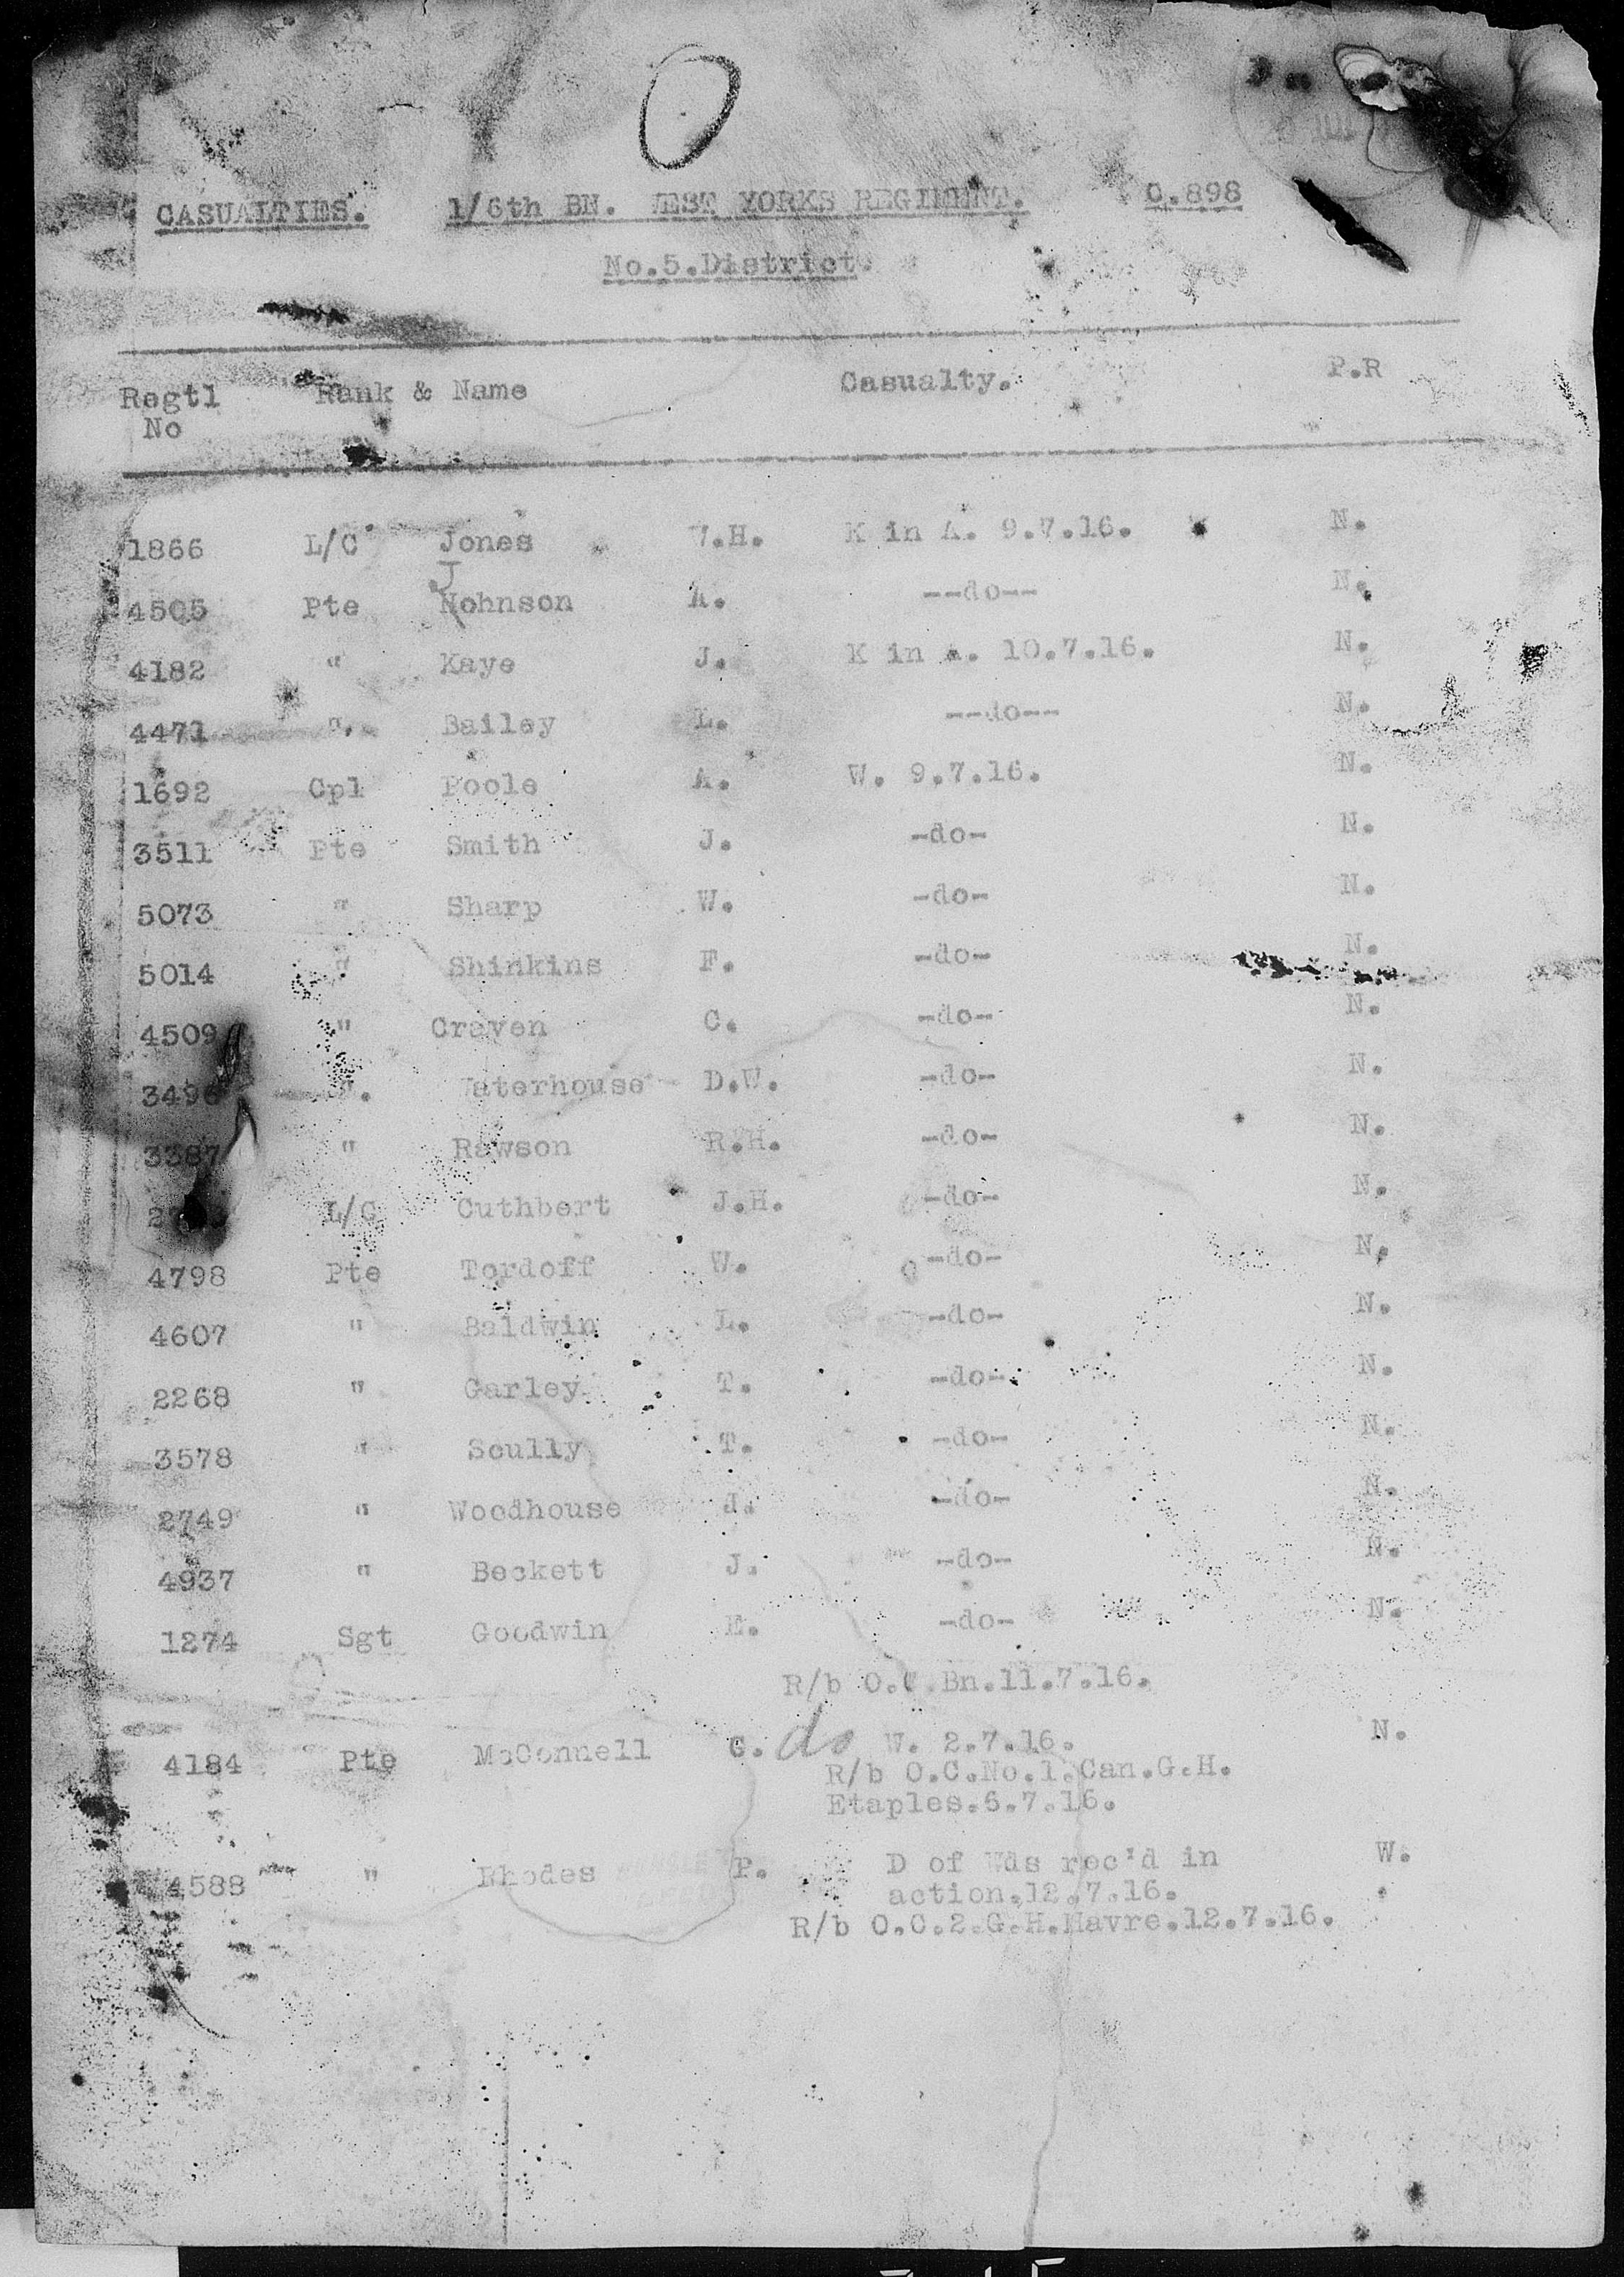 O
CASUALTIES. 1/6th BN. WEST YORKS REGIMENT. C.898
No.5.District.
Regtl Rank & Name Casualty. P.R
No
1866 L/C Jones W.H. K in A. 9.7.16. N.
4505 Pte Johnson A. --do-- N.
4182 " Kaye J. K in A. 10.7.16. N.
4471 " Bailey L. --do-- N.
1692 Cpl Poole A. W. 9.7.16. N.
3511 Pte Smith J. -do- N.
5073 " Sharp W. -do- N.
5014 " Shinkins F. -do- N.
4509 " Craven C. -do- N.
3496 " Waterhouse D.W. -do- N.
3387 " Rawson R.H. -do- N.
L/C Cuthbert J.H. -do- N.
4798 Pte Tordoff W. -do- N.
4607 " Baldwin L. -do- N.
2268 " Garley T. -do- N.
3578 " Scully T. -do- N.
2749 " Woodhouse J. -do- N.
4937 " Beckett J. -do- N.
1274 Sgt Goodwin E. -do- N.
R/b O.C.Bn.11.7.16.
4184 Pte McConnell G. do W. 2.7.16. N.
R/b O.C.No.1.Can.G.H.
Etaples.6.7.16.
4588 " Rhodes P. D of Wds rec'd in W.
action.12.7.16.
R/b O.C.2.G.H.Havre.12.7.16.